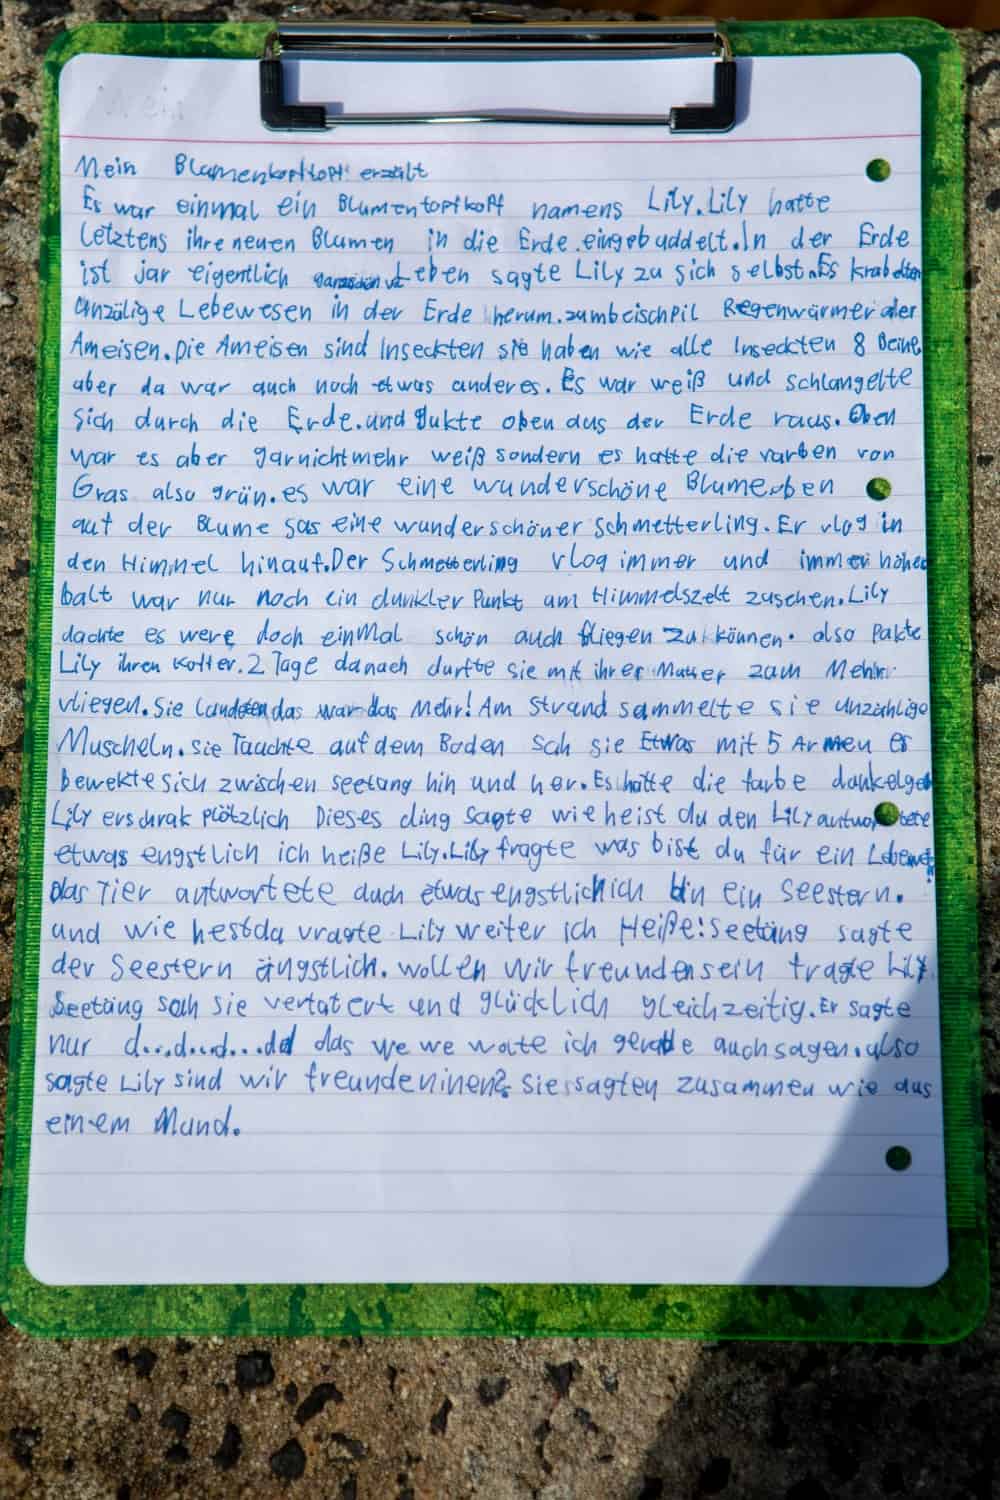 Mein
Mein Blumenkopftopf erzält
Es war einmal ein Blumentopfkopf namens Lily. Lily hatte
letztens ihre neuen Blumen in die Erde. eingebuddelt. In der Erde
ist jar eigentlich Leben sagte Lily zu sich selbst. Es krabelten
anzälige Lebewesen in der Erde herum. zumbeischpil Regenwürmer oder
Ameisen. Die Ameisen sind Inseckten sie haben wie alle Inseckten 8 Beine,
aber da war auch noch etwas anderes. Es war weiß und schlängelte
sich durch die Erde. und gukte oben aus der Erde raus. Oben
war es aber garnichtmehr weiß sondern es hatte die varben von
Gras also grün. es war eine wunderschöne Blume. oben
auf der Blume sas eine wunderschöner Schmetterling. Er vlog in
den Himmel hinauf. Der Schmetterling vlog immer und immer höher
balt war nur noch ein dunkler Punkt am Himmelszelt zusehen. Lily
dachte es were doch einmal schön auch fliegen zu können. also Pakte
Lily ihren Koffer. 2 Tage danach durfte sie mit ihrer Mutter zum Mehr
vliegen. Sie landeten das war das Mehr! Am Strand sammelte sie unzählige
Muscheln. Sie Tauchte auf dem Boden sah sie Etwas mit 5 Armen es
bewekte sich zwischen seetang hin und her. Es hatte die farbe dunkelgelb
Lily erschrak plötzlich Dieses ding sagte wie heist du den Lily antwortete
etwas engstlich ich heiße Lily. Lily fragte was bist du für ein Lebewe
das Tier antwortete auch etwas engstlich ich bin ein Seestern.
und wie hestdu vragte Lily weiter ich Heiße: Seetäng sagte
der Seestern ängstlich. wollen wir freunden sein fragte Lily.
Seetäng sah sie verfatert und glücklich gleichzeitig. Er sagte
nur d...d...d...dd das we we wolte ich gerade auch sagen. also
sagte Lily sind wir freundeninen? Sie sagten zusammen wie aus
einem Mund.